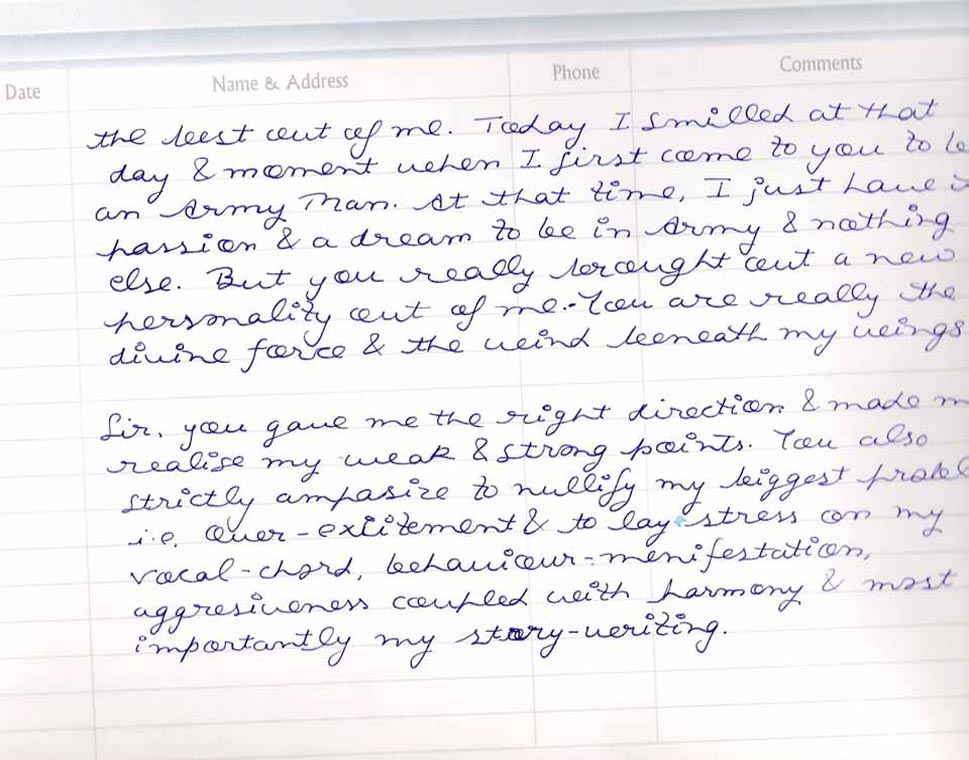 Date Name & Address Phone Comments
the best out of me. Today I smilled at that
day & moment when I first come to you to be
an Army Man. At that time, I just have a
passion & a dream to be in Army & nothing
else. But you really brought out a new
personality out of me. You are really the
divine force & the wind beneath my wings
Sir, you gave me the right direction & made m
realise my weak & strong points. You also
strictly ampasize to nullify my biggest probl
i.e. Over-excitement & to lay stress on my
vocal-chord, behaviour-menifestation,
aggresiveness coupled with harmony & most
importantly my story-writing.